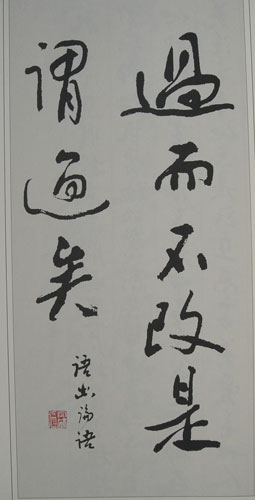 過而不改是
謂過矣
語出論語